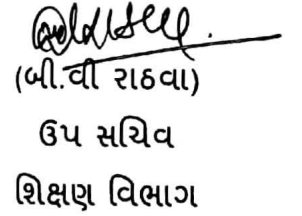 (બી.વી રાઠવા)
ઉપ સચિવ
શિક્ષણ વિભાગ